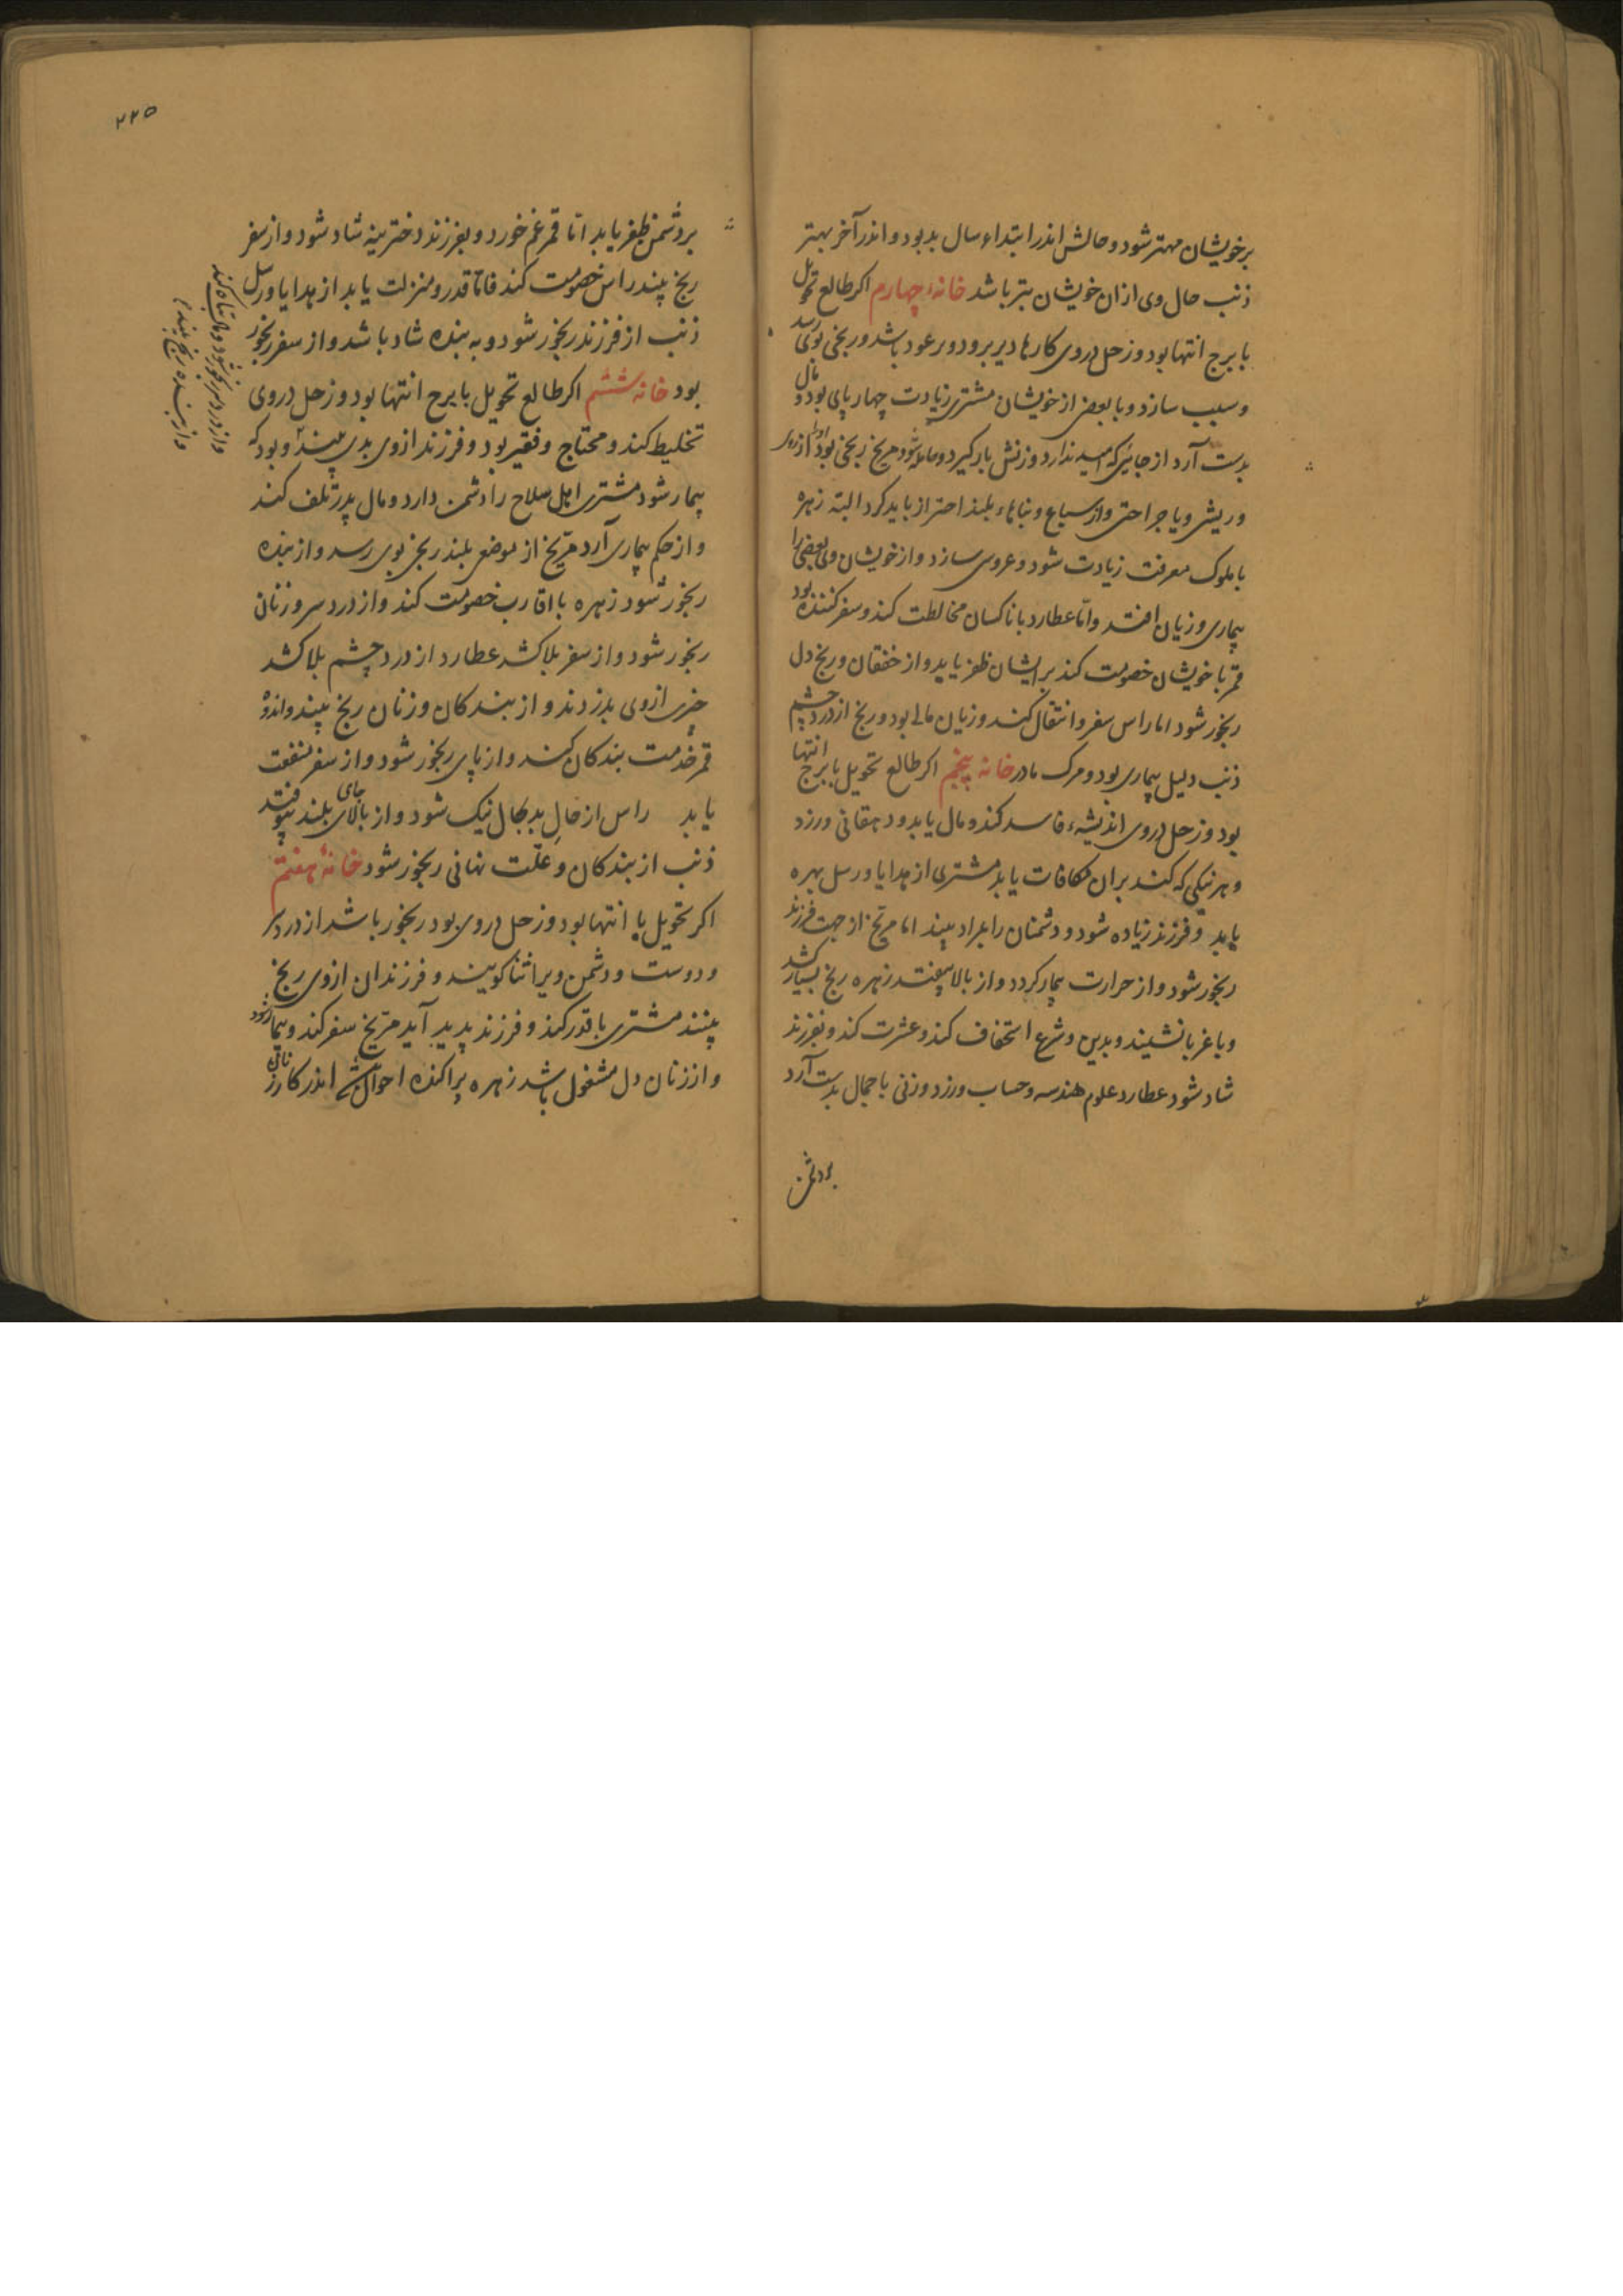 برخویشان مهتر شود و حالش اندر ابتداء سال بد بود و اندر آخر بهتر
ذنب حال وی ازان خویشان بتر باشد خانهٔ چهارم اکر طالع تحویل
با برج انتها بود و زحل دروی کارها دیر برود و برعود باشد و رنجی بوی رسد
و سبب سازد و با بعضی از خویشان مشتری زیادت چهارپای بود و مال
بدست آرد از جائیکه امید ندارد و زنش بار کیرد و حامله شود مریخ رنجی بود اورا از
و ریش و یا جراحتی و از سباع و بناهاء بلند احتراز باید کرد البته زهره
با ملوک معرفت زیادت شود و عروسی سازد و از خویشان وی بعضی را
بیماری و زیان افتد و امّا عطارد با ناکسان مخالطت کند و سفر کننده بود
قمر با خویشان خصومت کند بر ایشان ظفر یابد و از خفقان و رنج دل
رنجور شود اما راس سفر و انتقال کند و زیان مالی بود و رنج از درد چشم
ذنب دلیل بیماری بود و مرک مادر خانه پنجم اکر طالع تحویل با برج انتها
بود و زحل دروی اندیشهء فاسد کند و مال یابد و دهقانی ورزد
و هر نیکی که کند بران مکافات یابد مشتری از هدایا و رسل بهره
یابد و فرزند زیاده شود و دشمنان را بمراد بیند اما مریخ از جهت فرزند
رنجور شود و از حرارت بیمار کردد و از بالا بیفتد زهره رنج بسیار کشد
و با غربا نشیند و بدین و شرع استخفاف کند و عشرت کند و بفرزند
شاد شود عطارد علوم هندسه و حساب ورزد و زنی با جمال بدست آرد
بردشمن
۲۲۵
بردشمن ظفر یابد امّا قمر غم خورد و بفرزند دخترینه شاد شود و از سفر
رنج بیند راس خصومت کند قدر و منزلت یابد از هدایا و رسل
ذنب از فرزند رنجور شود و به بنده شاد باشد و از سفر رنجور
بود خانه ششم اکر طالع تحویل با برج انتها بود و زحل دروی
تخلیط کند و محتاج و فقیر بود و فرزند ازوی بدی بیند و بود که
بیمار شود مشتری اهل صلاح را دشمن دارد و مال پدر تلف کند
و از حکم بیماری آرد مریخ از موضع بلند رنج بوی رسد و از بنده
رنجور شود زهره با اقارب خصومت کند و از درد سر و زنان
رنجور شود و از سفر بلا کشد عطارد از درد چشم بلا کشد
چیزی ازوی بدزدند و از بندکان و زنان رنج بیند و اندوه
قمر خدمت بندکان کند و از پای رنجور شود و از سفر منفعت
یابد راس از حالِ بد بحال نیک شود و از بالای جای بلند بیوفتد
ذنب از بندکان و علّت نهانی رنجور شود خانهٔ هفتم
اکر تحویل با انتها بود و زحل دروی بود رنجور باشد از درد سر
و دوست و دشمن ویرا ثنا کویند و فرزندان ازوی رنج
بینند مشتری با قدر کند و فرزند پدید آید مریخ سفر کند و بیمار شود
و از زنان دل مشغول باشد زهره پراکنده احوال باشد اندر کار زنان
و از درد سر رنجور شود و مال تباه کند
و از بنده رنج بیند